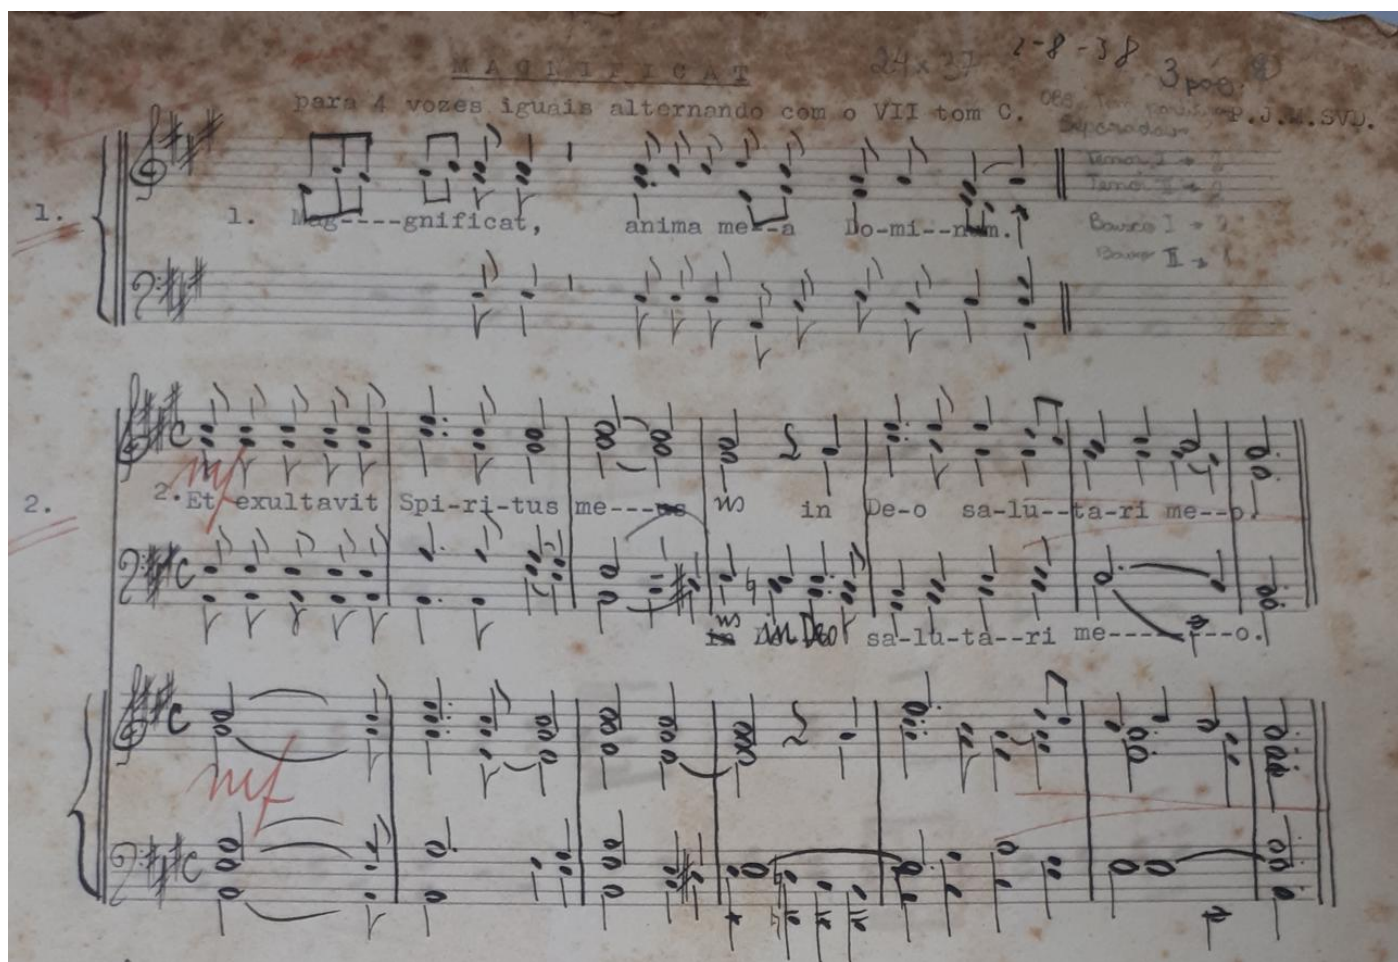 2-8-38
24 x 37
3 pág.
MAGLIFICAT
para 4 vozes iguais alternando com o VII tom C. P.J.M.SVD.
OBS.
Separadas
Tenor I → 2
Tenor II → 2
Baixo I → 2
Baixo II → 1
1.
1. Mag----gnificat, anima me--a Do-mi--num.
2.
C
mf
2. Et exultavit Spi-ri-tus me--- us in De-o sa-lu--ta-ri me--o.
C
us in Deo sa-lu-ta--ri me-------o.
C
mf
C